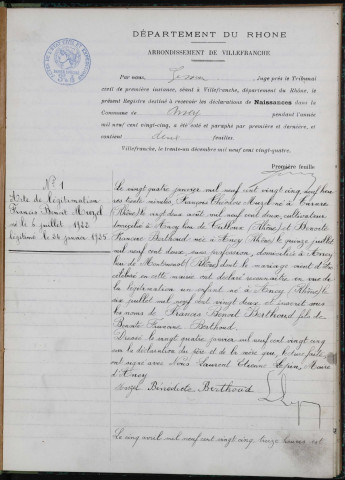 DÉPARTEMENT DU RHONE
ARRONDISSEMENT DE VILLEFRANCHE
Par nous, Juge près le Tribunal
civil de première instance, séant à Villefranche, département du Rhône, le
présent Registre destiné à recevoir les déclarations de Naissances dans la
Commune de Ancy pendant l'année
mil neuf cent vingt-cinq, a été coté et paraphé par première et dernière, et
contient deux feuilles
Villefranche, le trente-un décembre mil neuf cent vingt-quatre.
Première feuille
N° 1
Acte de légitimation
Francis Benoit Mozel
né le 6 juillet 1922
légitimé le 24 janvier 1925
Le vingt quatre janvier mil neuf cent vingt cinq neuf heu
res trente minutes François Mozel né à Tarare
(Rhône) le vingt deux août mil neuf cent deux, cultivateur
domicilié à Ancy et Benoite
Francine Berthoud née à Ancy (Rhône) le quinze juillet
mil neuf cent deux sans profession, domiciliée à Ancy
lieu de (Rhône) dont le mariage vient d'être
célébré en cette mairie ont déclaré reconnaître en vue de
la légitimation un enfant né à Ancy (Rhône) le
six juillet mil neuf cent vingt deux et inscrit sous
les noms de Francis Benoit Berthoud fils de
Benoite Francine Berthoud.
Dressé le vingt quatre janvier mil neuf cent vingt cinq
sur la déclaration du père et de la mère qui, lecture faite
ont signé avec Nous Laurent Etienne Maire
d'Ancy
Mozel Bénédicte Berthoud
Le cinq avril mil neuf cent vingt cinq, heures